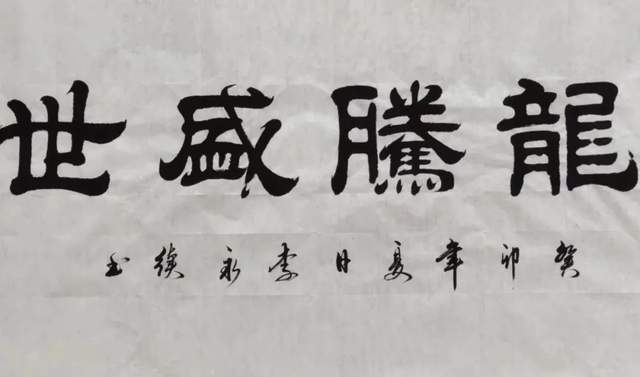 龍騰盛世
癸卯年夏日李永续书